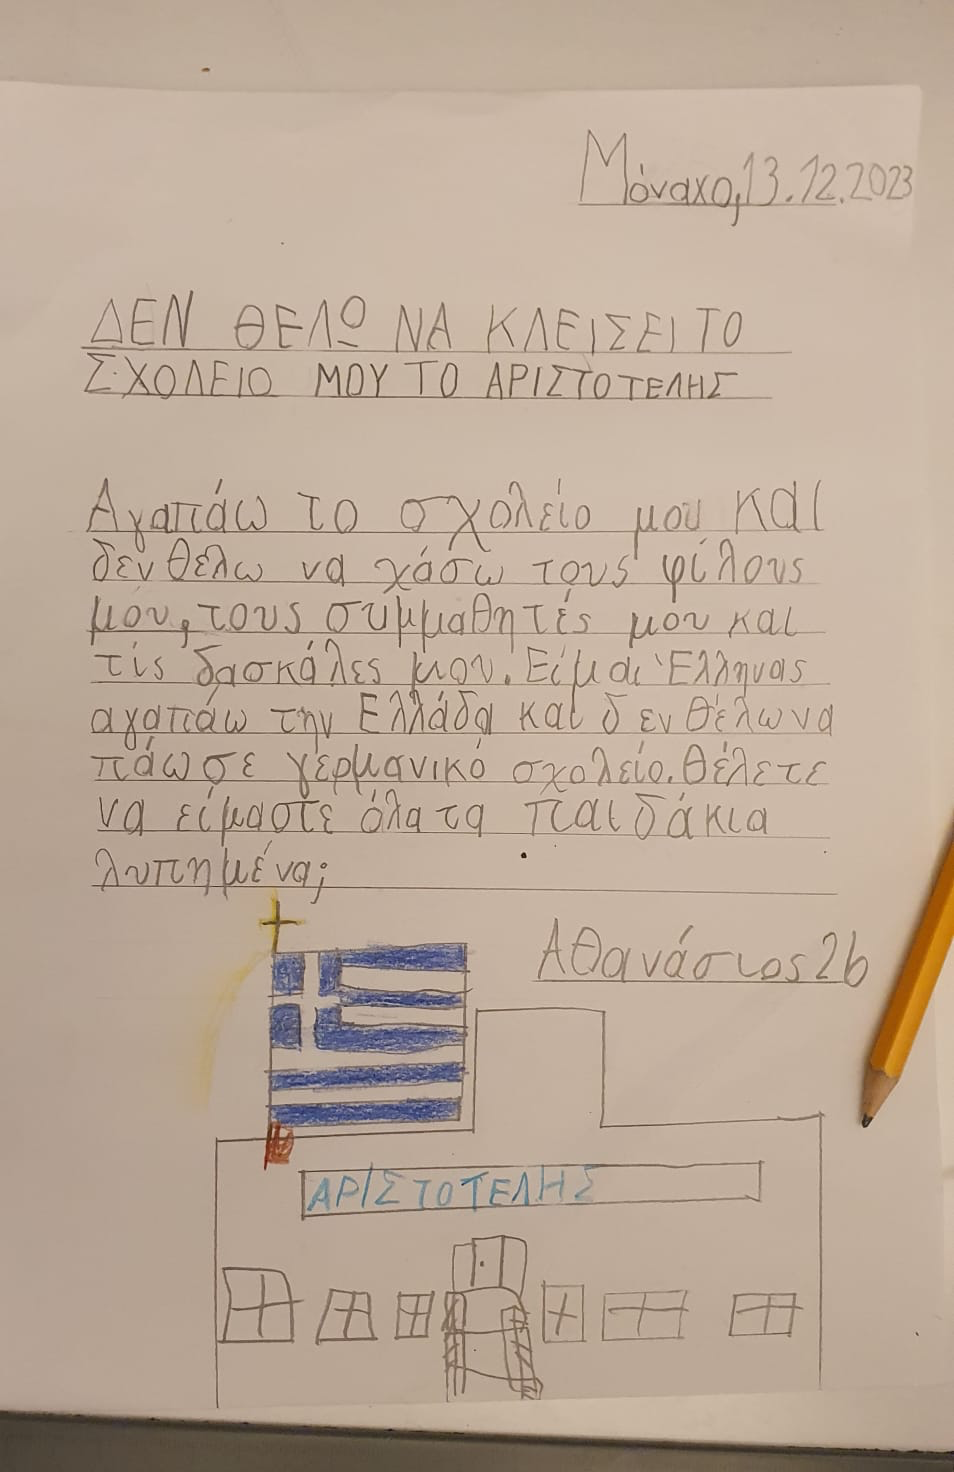 Μόναχο,13.12.2023
ΔΕΝ ΘΕΛΩ ΝΑ ΚΛΕΙΣΕΙ ΤΟ
ΣΧΟΛΕΙΟ ΜΟΥ ΤΟ ΑΡΙΣΤΟΤΕΛΗΣ
Αγαπάω το σχολείο μου και
δεν θέλω να χάσω τους φίλους
μου, τους συμμαθητές μου και
τις δασκάλες μου. Είμαι Έλληνας
αγαπάω την Ελλάδα και δεν θέλω να
πάω σε γερμανικό σχολείο. Θέλετε
να είμαστε όλα τα παιδάκια
λυπημένα;
Αθανάσιος 2b
ΑΡΙΣΤΟΤΕΛΗΣ